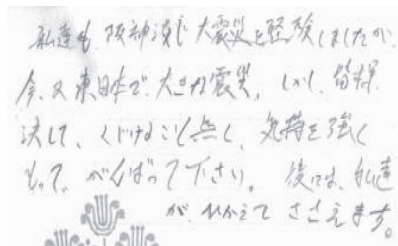 私達も、阪神淡じ大震災を経験しましたが、
今、又東日本で、大きな震災、しかし、皆様
決して、くじけること無く、気持を強く
もって、がんばって下さい。後には、私達
が、ひかえて ささえます。